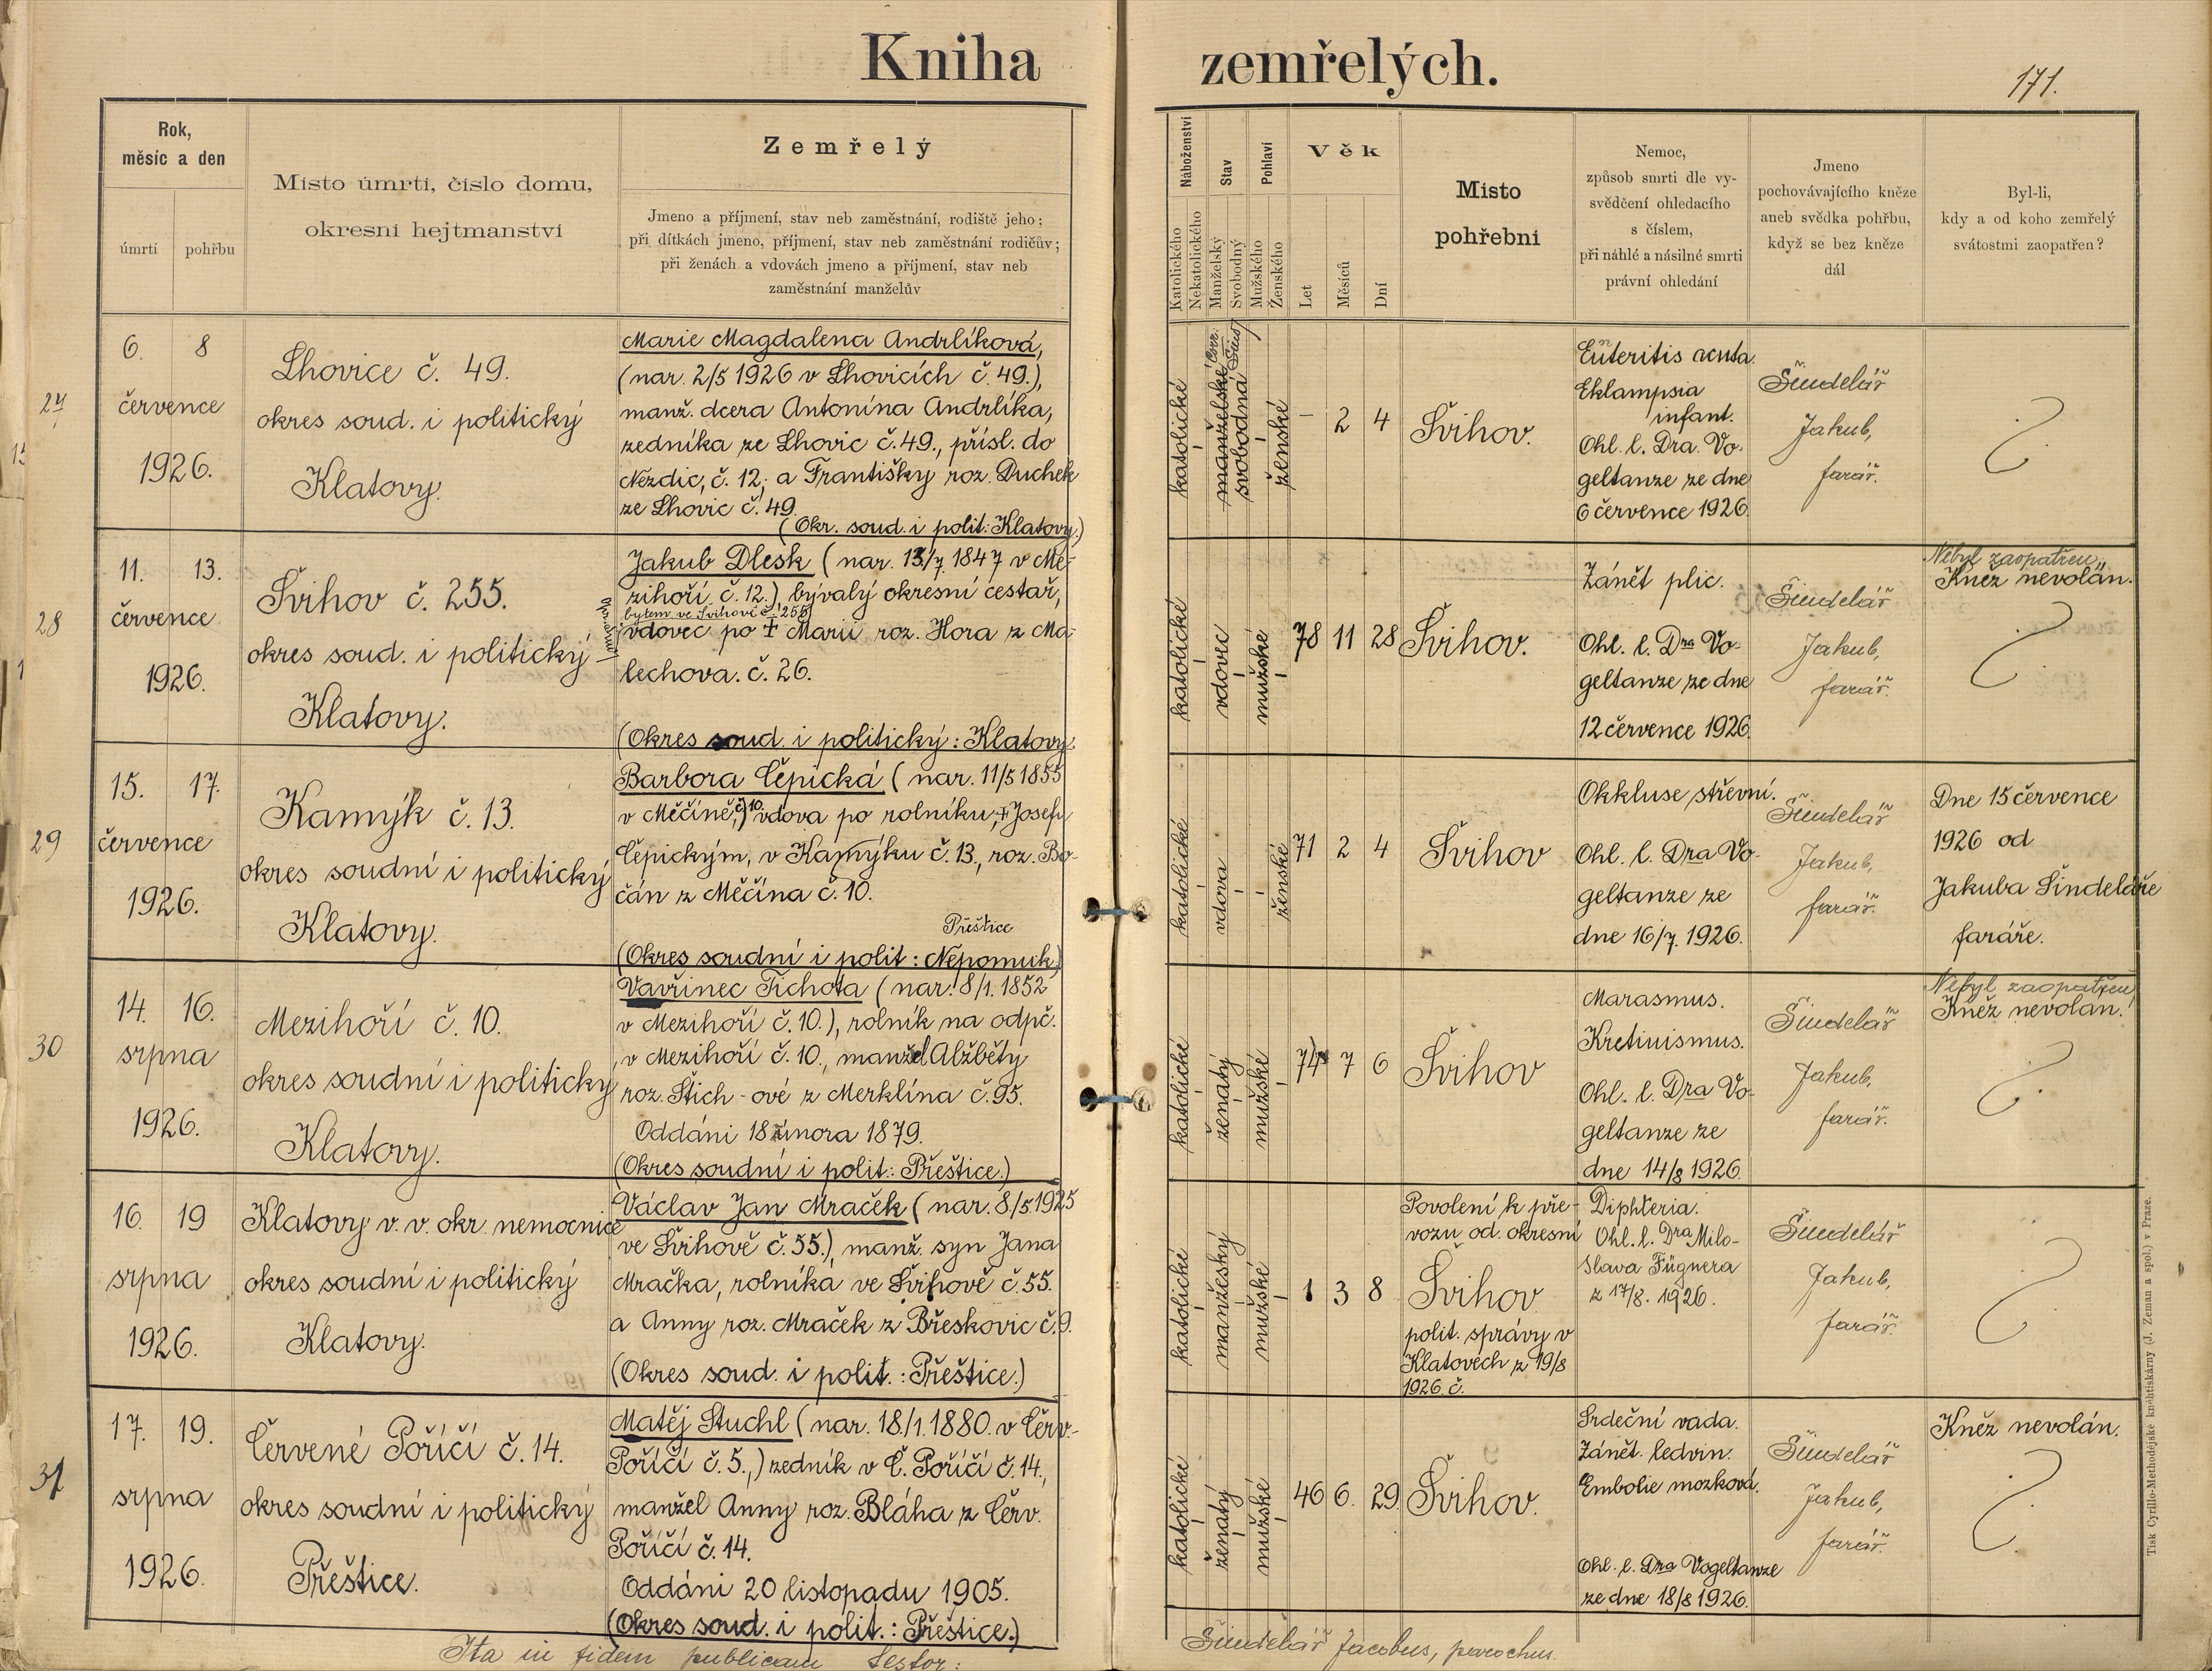 Kniha zemřelých.
171.
Rok,
měsíc a den
úmrtí
pohřbu
Místo úmrtí, číslo domu,
okresní hejtmanství
Zemřelý
Jmeno a příjmení, stav neb zaměstnání, rodiště jeho;
při dítkách jmeno, příjmení, stav neb zaměstnání rodičův;
při ženách a vdovách jmeno a příjmení, stav neb
zaměstnání manželův
Náboženství
Katolického
Nekatolického
Stav
Manželský
Svobodný
Pohlaví
Mužského
Ženského
Věk
Let
Měsíců
Dní
Místo
pohřební
Nemoc,
způsob smrti dle vy-
svědčení ohledacího
s číslem,
při náhlé a násilné smrti
právní ohledání
Jmeno
pochovávajícího kněze
aneb svědka pohřbu,
když se bez kněze
dál
Byl-li,
kdy a od koho zemřelý
svátostmi zaopatřen?
27
6. 8
července
1926.
Lhovice č. 49.
okres soud. i politický
Klatovy.
Marie Magdalena Andrlíková,
(nar. 2/5 1926 v Lhovicích č. 49.),
manž. dcera Antonína Andrlíka,
zedníka ze Lhovic č. 49., přísl. do
Nezdic, č. 12, a Františky roz. Duchek
ze Lhovic č. 49.
(Okr. soud. i polit: Klatovy.)
katolické
manželské
svobodná
ženské
– 2 4
Švihov.
Enteritis acuta.
Eklampsia
infant.
Ohl. l. Dra. Vo-
geltanze ze dne
6 července 1926.
Šindelář
Jakub,
farář.
28
11. 13.
července
1926.
Švihov č. 255.
okres soud. i politický
Klatovy.
Jakub Dlesk (nar. 13/7. 1847 v Me-
zihoří č. 12.) bývalý okresní cestář,
bytem ve Švihově č. 255
vdovec po † Marii roz. Hora z Ma-
lechova. č. 26.
(Okres soud. i politický: Klatovy.
katolické
vdovec
mužské
78 11 28
Švihov.
Zánět plic.
Ohl. l. Dra Vo-
geltanze ze dne
12 července 1926.
Šindelář
Jakub,
farář.
Nebyl zaopatřen,
Kněz nevolán.
29
15. 17.
července
1926.
Kamýk č. 13.
okres soudní i politický
Klatovy.
Barbora Čepická (nar. 11/5 1855
v Měčíně, č. 10.) vdova po rolníku, † Josefu
Čepickým, v Kamýku č. 13., roz. Bo-
čán z Měčína č. 10.
Přeštice
(Okres soudní i polit: Nepomuk.)
katolické
vdova
ženské
71 2 4
Švihov
Okkluse střevní.
Ohl. l. Dra Vo-
geltanze ze
dne 16/7. 1926.
Šindelář
Jakub,
farář.
Dne 15 července
1926 od
Jakuba Šindeláře
faráře.
30
14. 16.
srpna
1926.
Mezihoří č. 10.
okres soudní i politický
Klatovy.
Vavřinec Tichota (nar. 8/1. 1852
v Mezihoří č. 10.), rolník na odpč.
v Mezihoří č. 10., manžel Alžběty
roz. Štich-ové z Merklína č. 95.
Oddáni 18 února 1879.
(Okres soudní i polit: Přeštice.)
katolické
ženatý
mužské
74 7 6
Švihov
Marasmus.
Kretinismus.
Ohl. l. Dra Vo-
geltanze ze
dne 14/8 1926.
Šindelář
Jakub,
farář.
Nebyl zaopatřen
Kněz nevolán!
16. 19
srpna
1926.
Klatovy v. v. okr. nemocnice
okres soudní i politický
Klatovy.
Václav Jan Mraček (nar. 8./5 1925
ve Švihově č. 55.), manž. syn Jana
Mračka, rolníka ve Švihově č. 55.
a Anny roz. Mraček z Břeskovic č. 9.
(Okres soud. i polit.: Přeštice.)
katolické
manžeský
mužské
1 3 8
Povolení k pře-
vozu od. okresní
Švihov
polit. správy v
Klatovech z 19/8
1926. č.
Diphteria.
Ohl. l. Dra Milo-
slava Fügnera
z 17/8. 1926.
Šindelář
Jakub,
farář.
31
17. 19.
srpna
1926.
Červené Poříčí č. 14.
okres soudní i politický
Přeštice.
Matěj Stuchl (nar. 18./1. 1880. v Červ.-
Poříčí č. 5.,) zedník v Č. Poříčí č. 14.,
manžel Anny roz. Bláha z Červ.
Poříčí č. 14.
Oddáni 20 listopadu 1905.
(Okres soud. i polit.: Přeštice.)
katolické
ženatý
mužské
46 6. 29.
Švihov.
Srdeční vada.
Zánět. ledvin.
Embolie mozková.
Ohl. l. Dra Vogeltanze
ze dne 18/8 1926.
Šindelář
Jakub,
farář.
Kněz nevolán.
Ita in fidem publicam testor:
Šindelář Jacobus, parochus.
Tisk Cyrillo-Methodějské kněhtiskárny (J. Zeman a spol.) v Praze.